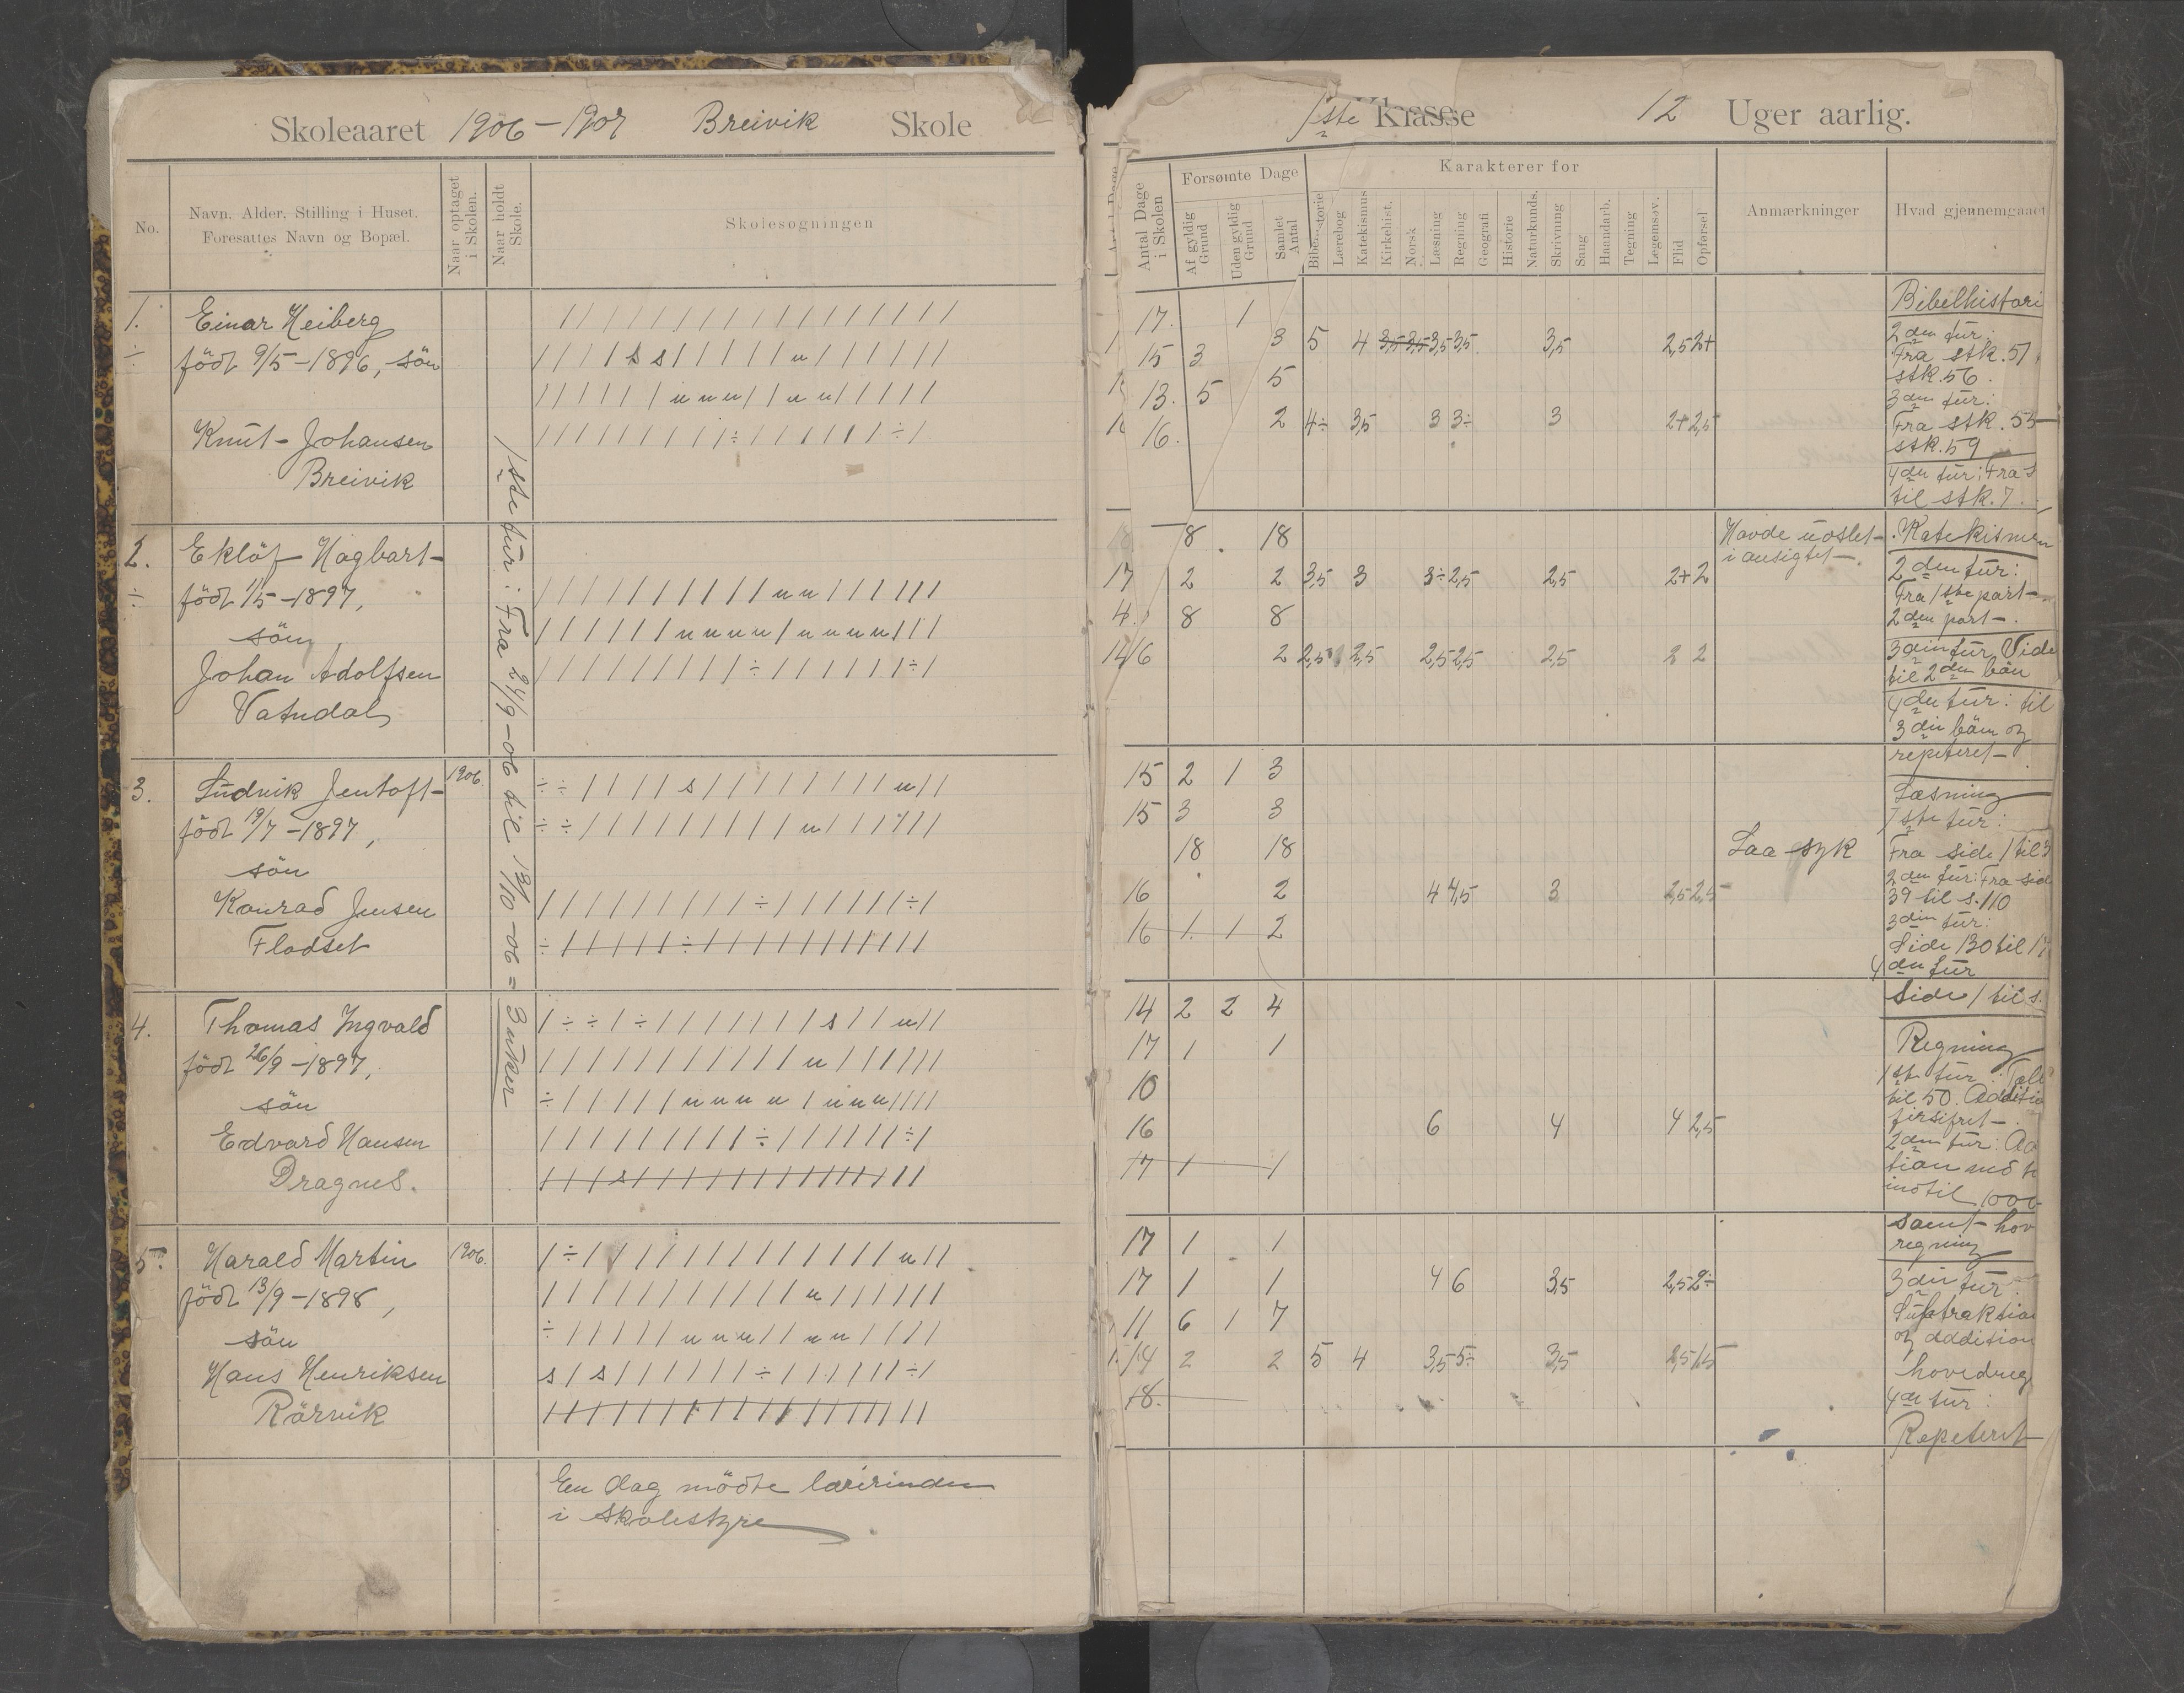 Skoleaaret 1906-1907 Breivik Skole
No.
Navn. Alder. Stilling i Huset.
Foresattes Navn og Bopæl.
Naar optaget
i Skolen.
Naar holdt
Skole.
Skolesøgningen
1.
Einar Heiberg
÷
födt 9/5-1896, sön
Knut Johansen
Breivik
2.
Eklöf Hagbart
÷
födt 1/5-1897,
sön
Johan Adolfsen
Vatndal
3.
Ludvik Jentoft
1906
födt 19/7-1897,
sön
Konrad Jensen
Flodset
4.
Thomas Ingvald
födt 26/9-1897,
sön
Edvard Hansen
Dragnes.
5.
Harald Martin
1906.
födt 13/9-1898,
sön
Hans Henriksen
Rörvik
1ste tur: Fra 24/9-06 til 13/10-06 = 3 uker
/ / / / / / / / / / / / / / / / /
/ / / / s s / / / / / u / / / / / /
/ / / / / / u u u / / u u / / / / /
/ / / / / / / / ÷ / / / / / / ÷ /
/ / / / / / / / / / u u / / / / / /
/ / / / / / u u u u / u u u u / / /
/ / / / / / / / / ÷ / / / / / / ÷ /
÷ ÷ / / / / s / / / / / / / / u / /
÷ ÷ / / / / / / / / / u / / / / / /
/ / / / / / / / / ÷ / / / / / / ÷ /
÷ / / / / / ÷ / / / / / / / / / / /
/ ÷ ÷ / ÷ / / / / / / / s / / u / /
/ / / / / / / / / / / u / / / / / /
÷ / / / / / u u u u / u u u / / / /
/ / / / / / / / / ÷ / / / / / / ÷ /
/ / / s / / / / / / / / / / / / / /
/ ÷ / / / / / / / / / / / / / u / /
/ / / / / / / / / / / u / / / / / /
÷ / / / / / u u u / / u u / / / /
s / s / / / / / / ÷ / / / / / / ÷ /
/ / / / / / / / / / / / / / / / / /
En dag mödte lærerinden
i skolestyre
1ste Klasse 12 Uger aarlig.
Antal Dage
i Skolen
Forsømte Dage
Af gyldig
Grund
Uden gyldig
Grund
Samlet
Antal
Karakterer for
Bibelhistorie
Lærebog
Katekismus
Kirkehist.
Norsk
Læsning
Regning
Geografi
Historie
Naturkunds.
Skrivning
Sang
Haandarb.
Tegning
Legemsøv.
Flid
Opførsel
Anmærkninger
Hvad gjennemgaaet
17. 1
15 3 3 5 4 3,5 3,5 3,5 3,5 3,5 2,5 2+
13. 5 5
16. 2 4÷ 3,5 3 3÷ 3 2+ 2,5
18 18
17 2 2 3,5 3 3÷ 2,5 2,5 2+ 2
4. 8 8
16 2 2,5 2,5 2,5 2,5 2,5 2 2
Havde udslet
i ansigtet
15 2 1 3
15 3 3
18 18
16 2 4 4,5 3 2,5 2,5
16 1. 1 2
Laa syk
14 2 2 4
17 1 1
10
16 6 4 4 2,5
17 1 1
17 1 1
17 1 1 4 6 3,5 2,5 2÷
11 6 1 7
14 2 2 5 4 3,5 5÷ 3,5 2,5 1,5
18.
Bibelhistori
2den tur:
Fra stk. 51
stk. 56.
3din tur:
Fra stk. 55
stk. 59
4du tur: Fra s
til stk. 7.
Katekismen
2den tur:
Fra 1ste part
2den part.
3din tur Vide
til 2den bön
4du tur: til
3din bön og
repeteret
Læsning
1ste tur:
Fra side 1 til 3
2den tur: Fra side
39 til s. 110
3din tur:
Side 130 til 17
4du tur
Side 1 til s.
Regning
1ste tur: Tall
til 50. Additio
firsifret.
2den tur: Ad
tion med t
indtil 1000
samt hov
regning
3din tur.
Subtraktion
og addition
hovedreg
4du tur:
Repeteret